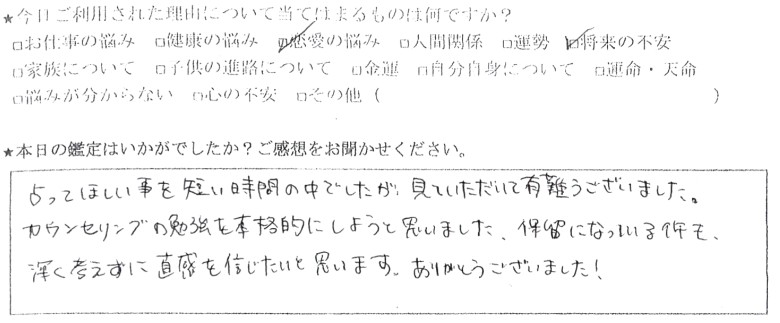 ★今日ご利用された理由について当てはまるものは何ですか？
□お仕事の悩み □健康の悩み ☑恋愛の悩み □人間関係 □運勢 ☑将来の不安
□家族について □子供の進路について □金運 □自分自身について □運命・天命
□悩みが分からない □心の不安 □その他（ ）
★本日の鑑定はいかがでしたか？ご感想をお聞かせください。
占ってほしい事を短い時間の中でしたが、見ていただいて有難うございました。
カウンセリングの勉強を本格的にしようと思いました、保留になっている件も、
深く考えずに直感を信じたいと思います。ありがとうございました！